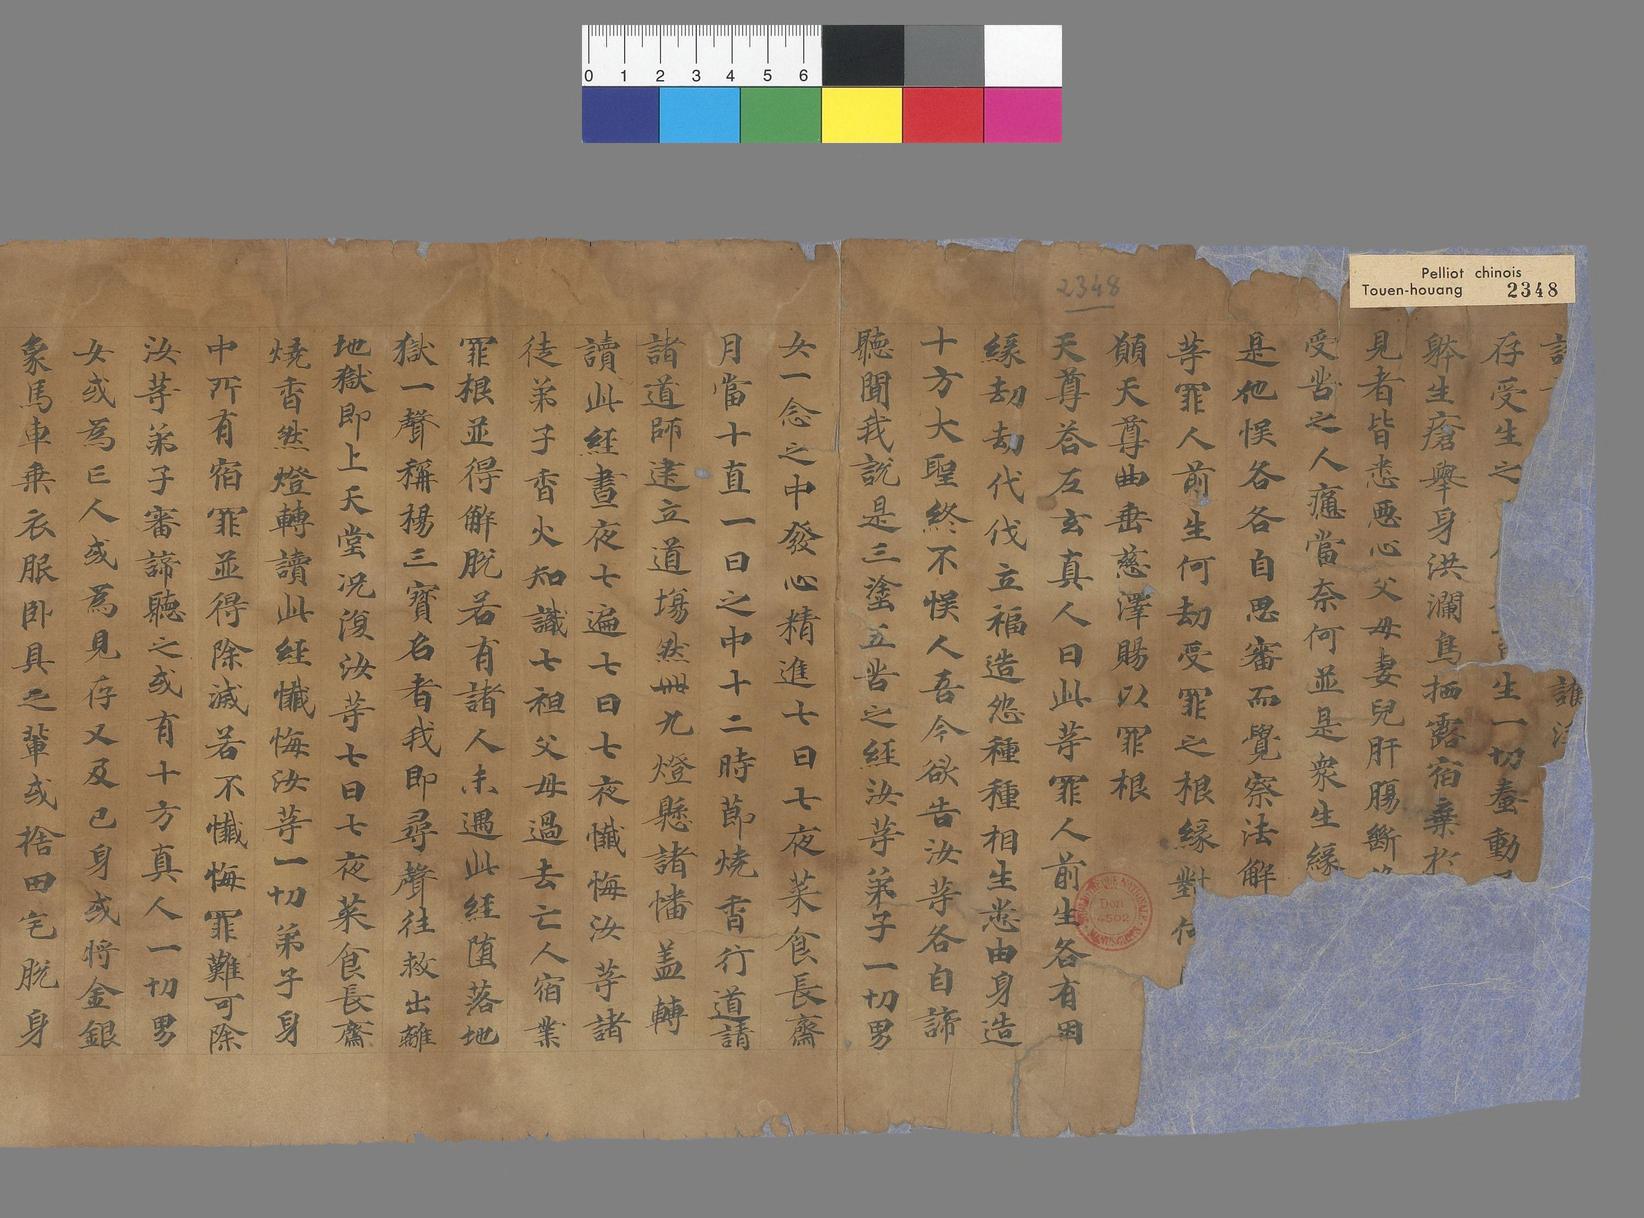 0 1 2 3 4 5 6
Pelliot chinois
Touen-houang 2348
2348
存受生之
生一切蠢動
躰生瘡舉身洪瀾鳥栖露宿棄於
見者皆恚惡心父母妻兒肝腸斷
受苦之人痛當奈何並是衆生緣
是他悮各各自思審而覺察法解
䓁罪人前生何劫受罪之根緣對何
願天尊曲垂慈澤賜以罪根
天尊荅左玄真人曰此䓁罪人前生各有因
緣劫劫代代立福造怨種種相生恚由身造
十方大聖終不悮人吾今欲告汝䓁各自諦
聽聞我說是三塗五苦之經汝䓁弟子一切男
女一念之中發心精進七日七夜菜食長齋
月當十直一日之中十二時莭燒香行道請
諸道師建立道場然卌九燈懸諸幡盖轉
讀此經晝夜七遍七日七夜懺悔汝䓁諸
徒弟子香火知識七祖父母過去亡人宿業
罪根並得解脫若有諸人未遇此經墮落地
獄一聲稱揚三寶名者我即尋聲往救出離
地獄即上天堂况復汝䓁七日七夜菜食長齋
燒香然燈轉讀此經懺悔汝䓁一切弟子身
中所有宿罪並得除滅若不懺悔罪難可除
汝䓁弟子審諦聽之或有十方真人一切男
女或爲亡人或爲見存又及己身或將金銀
象馬車乗衣服卧具之輩或捨田宅脫身
Don 4502